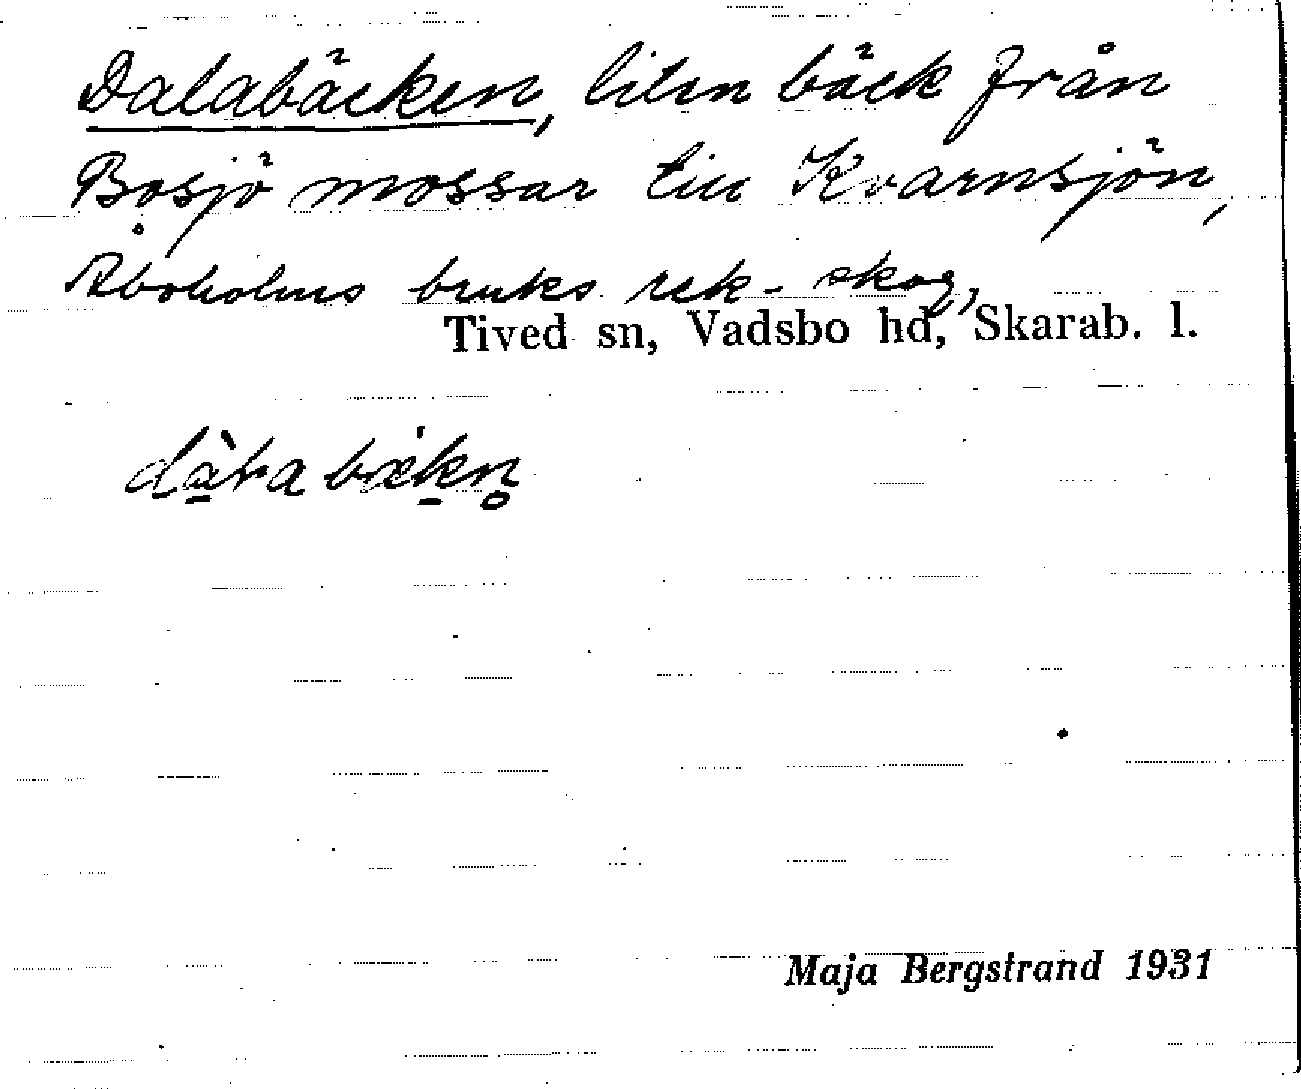 Dalabäcken, liten bäck från
Bosjö mossar till Kvarnsjön,
Åboholms bruks rek-skog,
Tived sn, Vadsbo hd, Skarab. l.
Maja Bergstrand 1931